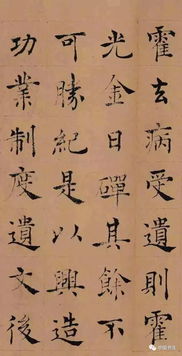 霍去病受遺則霍
光金日磾其餘不
可勝紀是以興造
功業制度遺文後